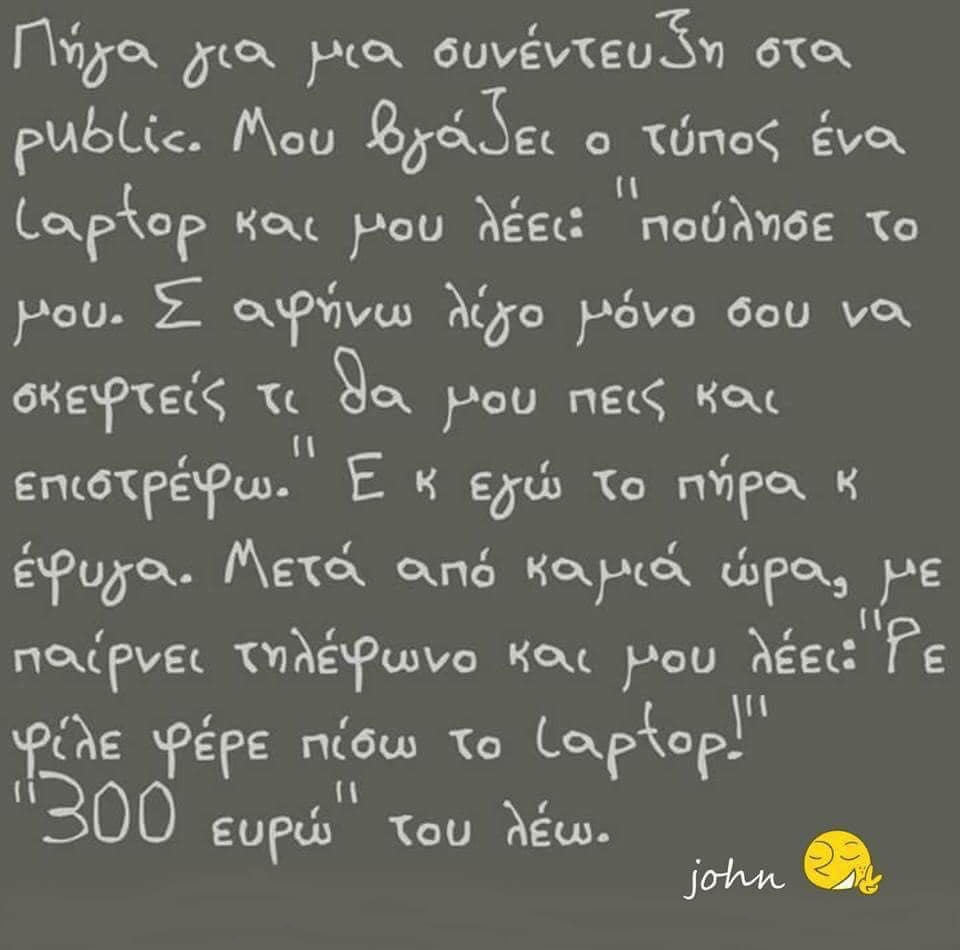 Πήγα για μια συνέντευξη στα
public. Μου βγάζει ο τύπος ένα
laptop και μου λέει: "πούλησε το
μου. Σ αφήνω λίγο μόνο σου να
σκεφτείς τι θα μου πεις και
επιστρέφω." Ε κ εγώ το πήρα κ
έφυγα. Μετά από καμιά ώρα, με
παίρνει τηλέφωνο και μου λέει: "Ρε
φίλε φέρε πίσω το laptop!"
"300 ευρώ" του λέω.
john